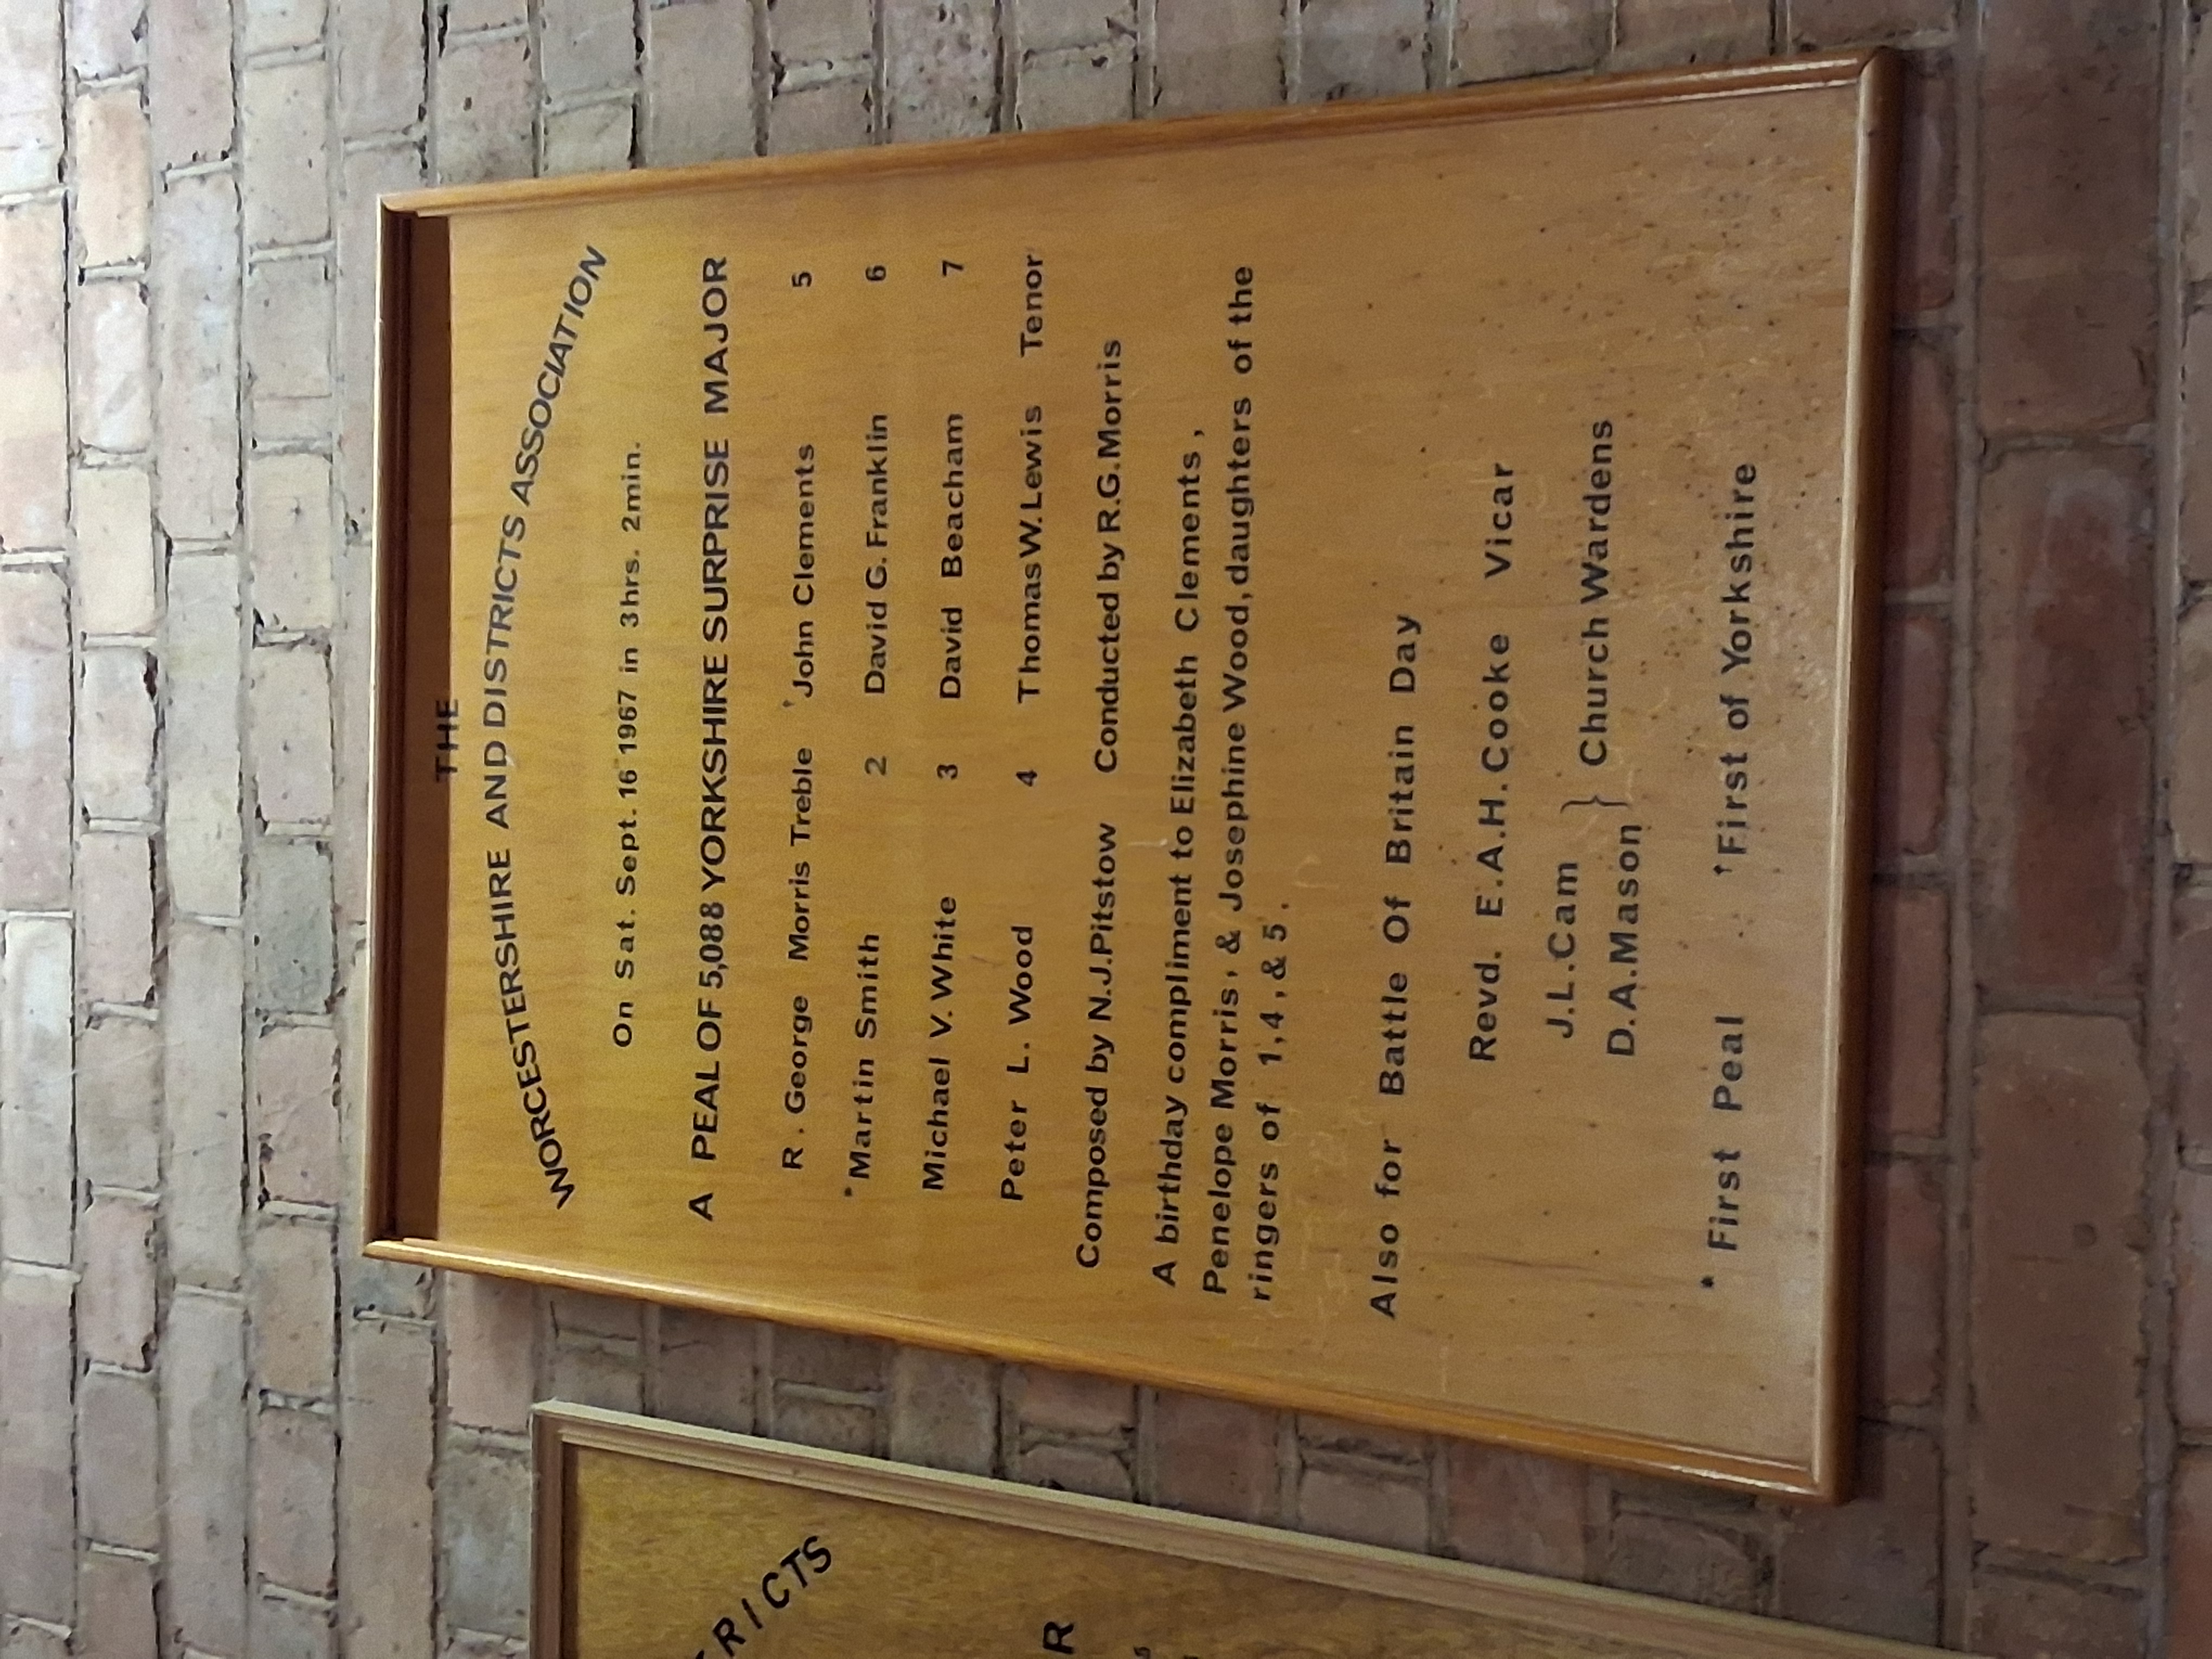 THE
WORCESTERSHIRE AND DISTRICTS ASSOCIATION
On Sat. Sept. 16 1967 in 3hrs. 2min.
A PEAL OF 5,088 YORKSHIRE SURPRISE MAJOR
R. George Morris Treble †John Clements 5
*Martin Smith 2 David G. Franklin 6
Michael V. White 3 David Beacham 7
Peter L. Wood 4 Thomas W. Lewis Tenor
Composed by N.J.Pitstow Conducted by R.G.Morris
A birthday compliment to Elizabeth Clements,
Penelope Morris, & Josephine Wood, daughters of the
ringers of 1,4,&5.
Also for Battle Of Britain Day
Revd. E.A.H.Cooke Vicar
J.L.Cam } Church Wardens
D.A.Mason
* First Peal †First of Yorkshire
RICTS
R